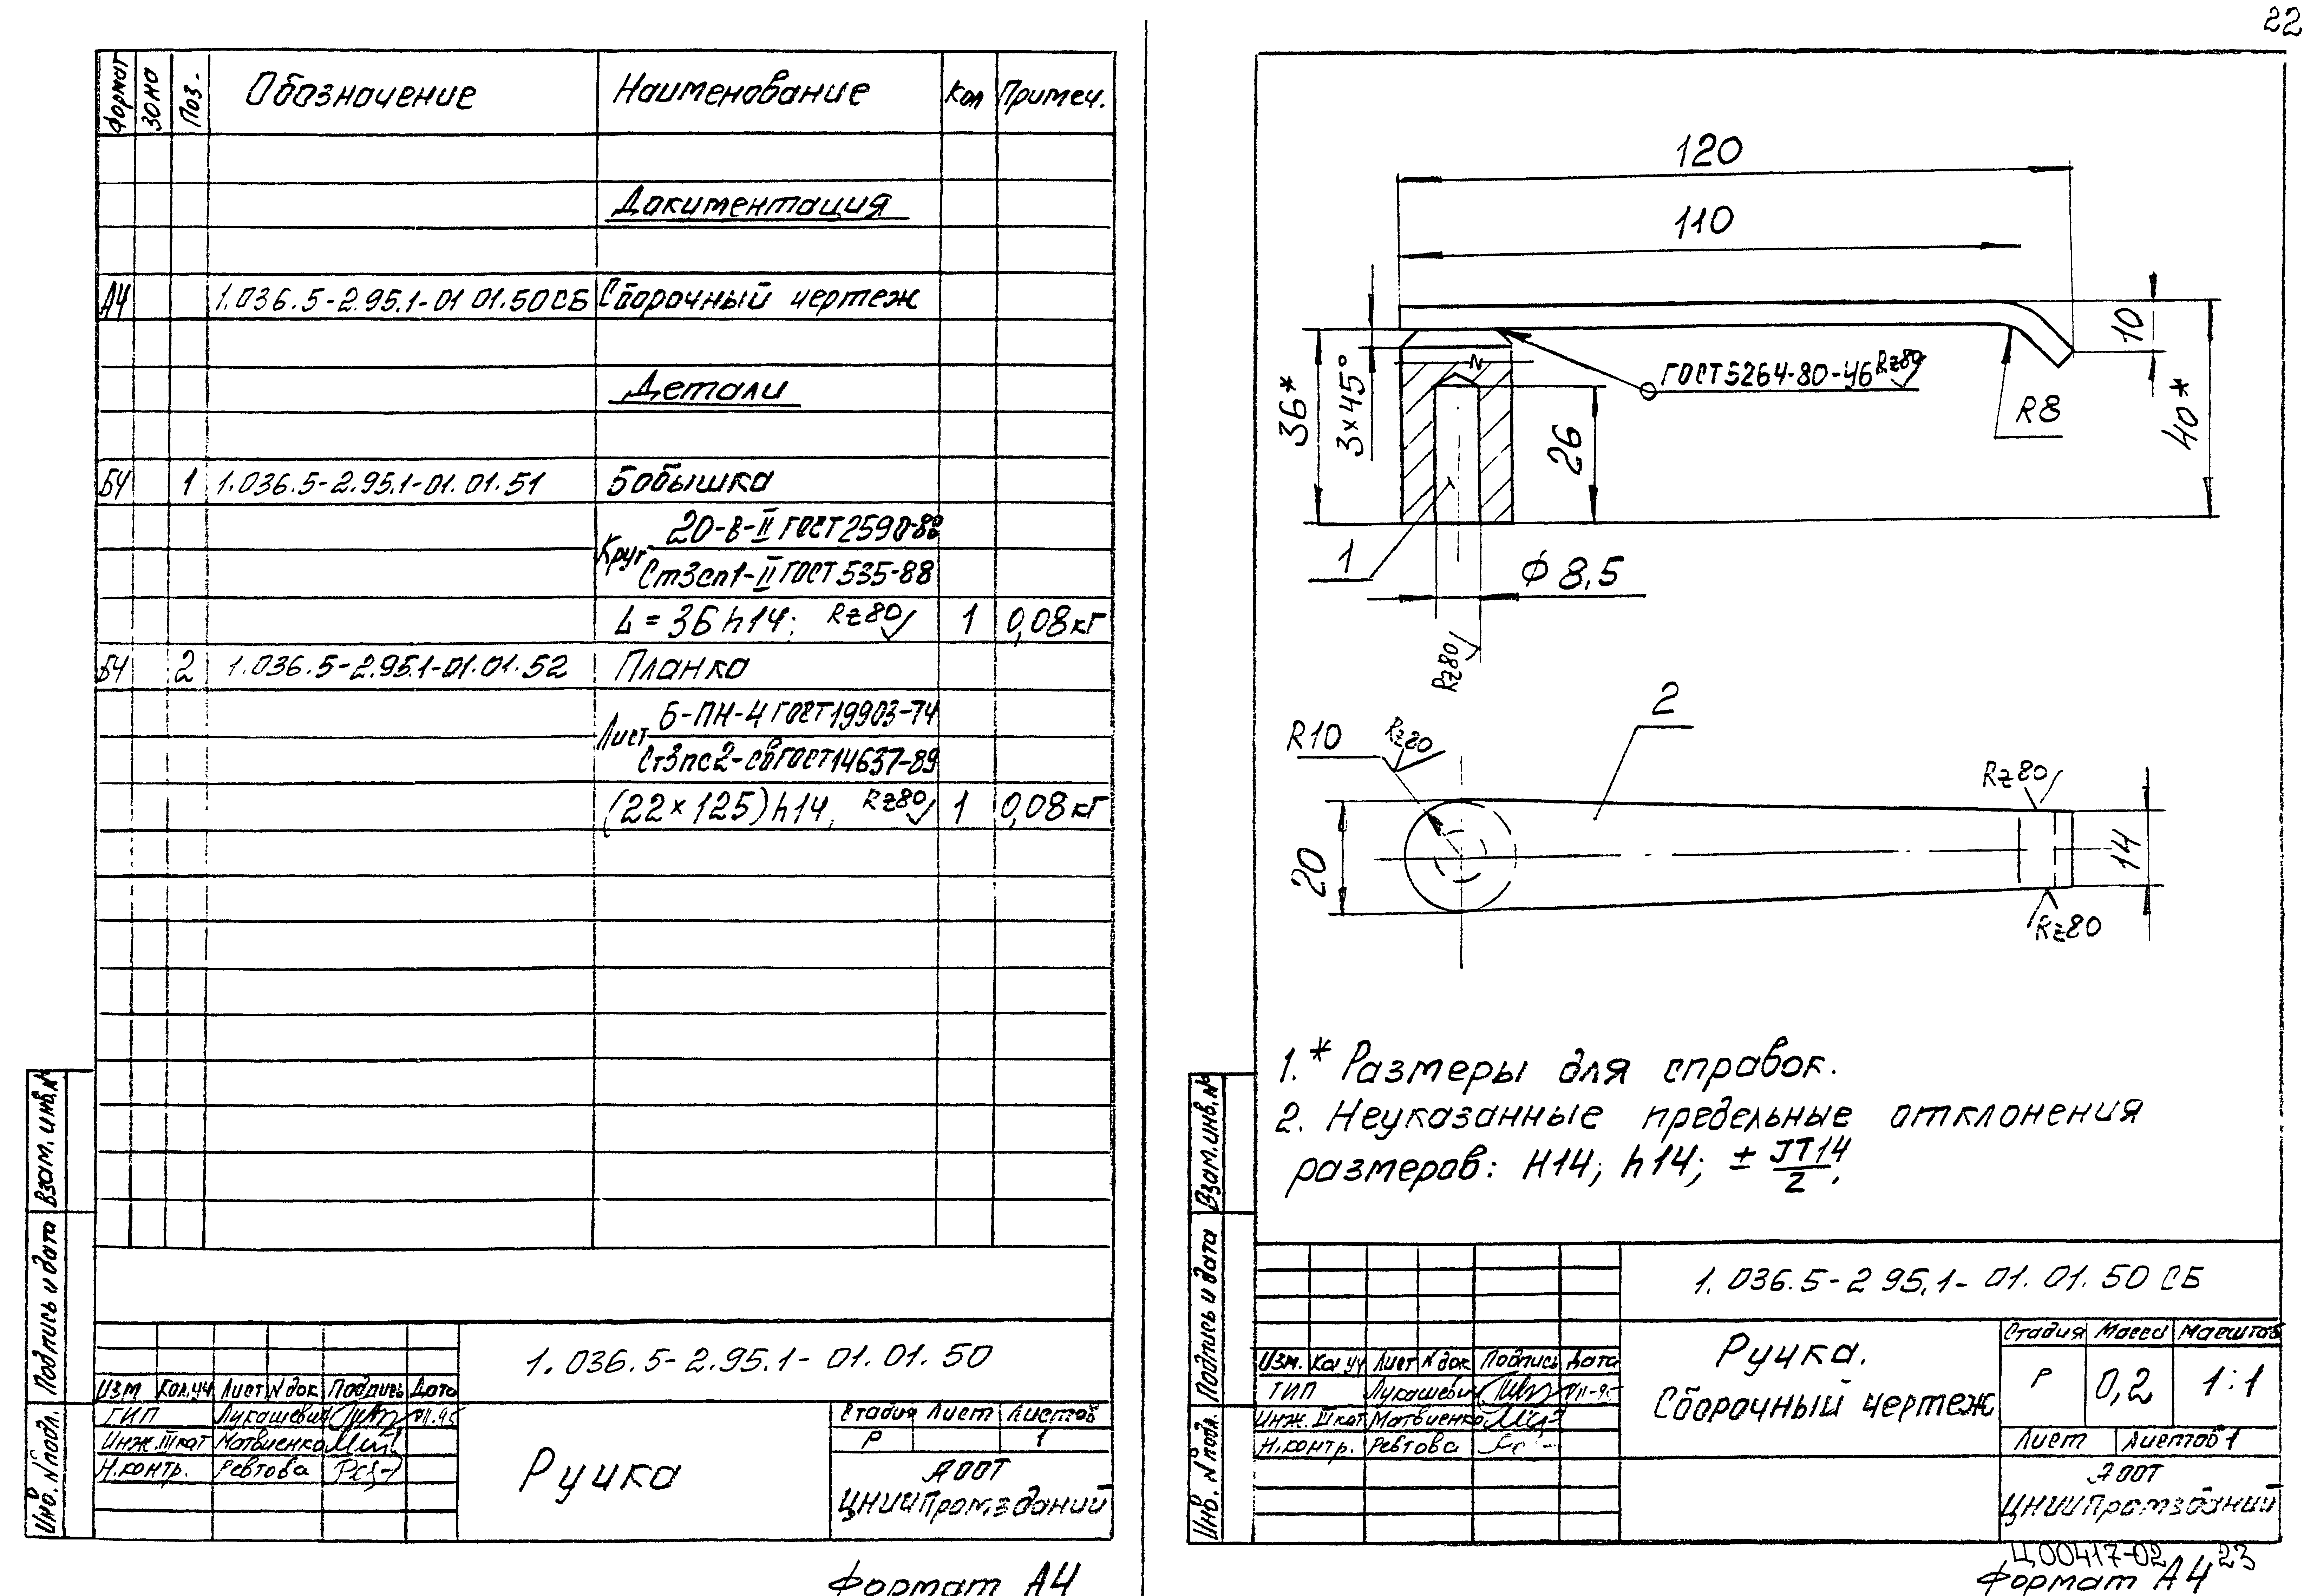 22
Формат
Зона
Поз.
Обозначение
Наименование
Кол
Примеч.
Документация
А4 1.036.5-2.95.1-01 01.50СБ Сборочный чертеж
Детали
БЧ 1 1.036.5-2.95.1-01.01.51 Бобышка
Круг 20-В-II ГОСТ 2590-88
Ст3сп1-II ГОСТ 535-88
L = 36 h14; Rz80 1 0,08 кг
БЧ 2 1.036.5-2.95.1-01.01.52 Планка
Лист Б-ПН-4 ГОСТ 19903-74
Ст3пс2-св ГОСТ 14637-89
(22 × 125) h14, Rz80 1 0,08 кг
Взам. инв. №
Подпись и дата
Инв. № подл.
1.036.5-2.95.1-01.01.50
Изм Кол.уч Лист N док Подпись Дата
ГИП Лукашевич VII.95
Инж. III кат Матвиенко
Н.контр. Ревтова
Ручка
Стадия Лист Листов
Р 1
АООТ
ЦНИИПромзданий
Формат А4
120
110
36*
3×45°
26
ГОСТ 5264-80-У6 Rz80
R8
10
40*
1
ϕ 8,5
Rz80
R10
Rz80
2
20
Rz80
14
Rz80
1.* Размеры для справок.
2. Неуказанные предельные отклонения
размеров: H14; h14; ± JT14/2.
Взам. инв. №
Подпись и дата
Инв. № подл.
1.036.5-2 95.1-01.01.50 СБ
Изм. Кол уч Лист N док Подпись Дата
ГИП Лукашевич VII-95
Инж. III кат Матвиенко
Н.контр. Ревтова
Ручка.
Сборочный чертеж
Стадия Масса Масштаб
Р 0,2 1:1
Лист Листов 1
АООТ
ЦНИИПромзданий
Ц00417-02 23
Формат А4